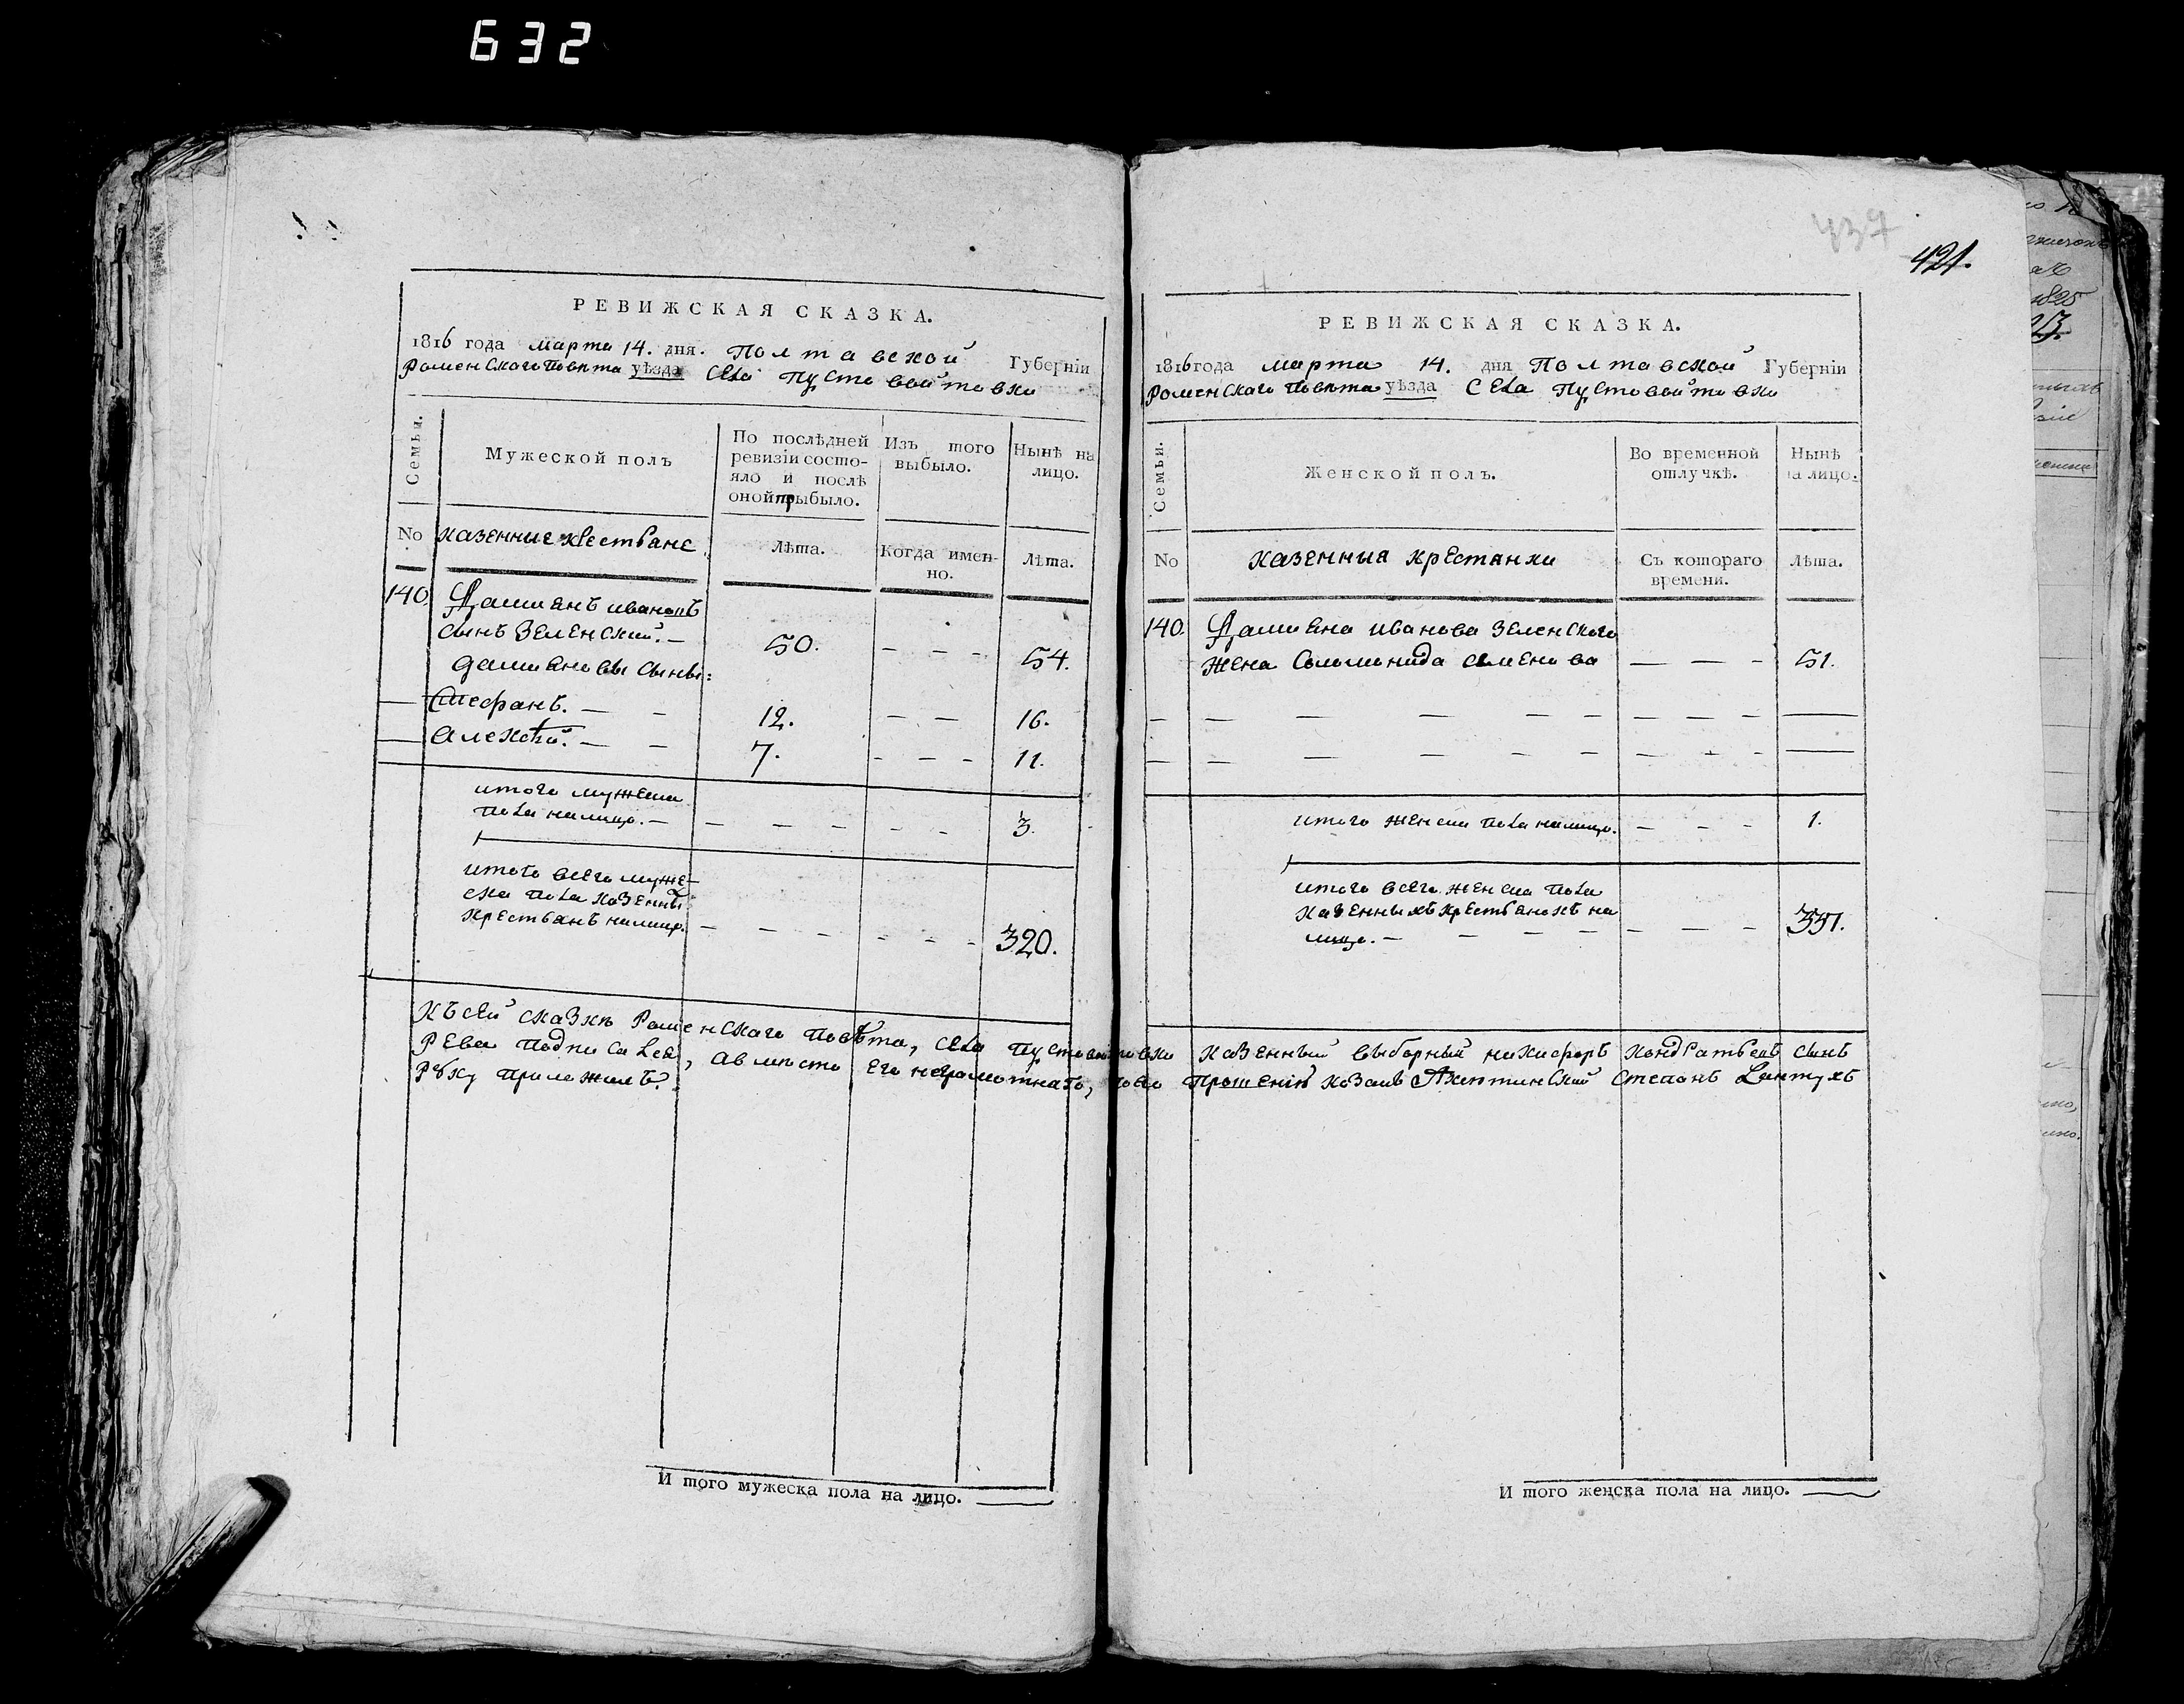 632
437
421.
РЕВИЖСКАЯ СКАЗКА.
1816 года марта 14. дня. Полтавской Губерніи
Роменскаго Повѣта уѣзда села Пустовойтовки
Семьи.
Мужеской полъ
По послѣдней ревизіи состояло и послѣ оной прибыло.
Изъ того выбыло.
Нынѣ на лицо.
No казенние крестьяне
Лѣта.
Когда именно.
Лѣта.
140. Дамиянъ ивановъ
сынъ Зеленский. — 50. — — — 54.
дамияновы сыны:
— Стефанъ. — — 12. — — 16.
— алексѣй. — — 7. — — — 11.
итого мужеска
пола налицо. — — — — — — 3.
итого всего муже-
ска пола казеннъ
крестьянъ налицо. — — — — — — 320.
РЕВИЖСКАЯ СКАЗКА.
1816 года марта 14. дня Полтавской Губерніи
Роменскаго Повѣта уѣзда села Пустовойтовки
Семьи.
Женской полъ.
Во временной отлучкѣ.
Нынѣ на лицо.
No казенныя крестянки
Съ котораго времени.
Лѣта.
140. Дамияна иванова Зеленского
жена Соломонида семенова — — — 51.
итого женска пола налицо. — — — 1.
итого всего женска пола
казенныхъ крестьянокъ на
лицо. — — — — — — — 337.
Къ сей сказкѣ Роменскаго повѣта, села Пустовойтовки казенный выборный никифоръ кондратьевъ сынъ
Рева подписалея, а вмѣсто его неграмотнаго, по его прошению козакъ Степанъ Лантухъ
руку приложилъ.
И того мужеска пола на лицо.
И того женска пола на лицо.